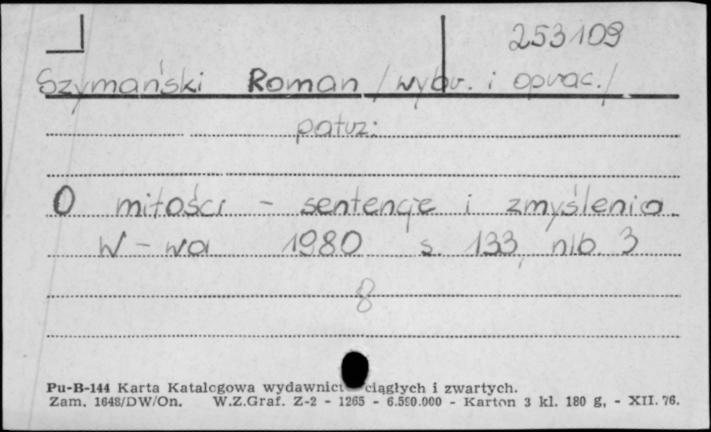 253109
Szymański Roman /wybr. i oprac./
patrz:
O miłości - sentencje i zmyślenia
W-wa 1980 s. 133, nlb. 3
8
Pu-B-144 Karta Katalogowa wydawnict ciągłych i zwartych.
Zam. 1648/DW/On. W.Z.Graf. Z-2 - 1265 - 6.590.000 - Karton 3 kl. 180 g, - XII. 76.